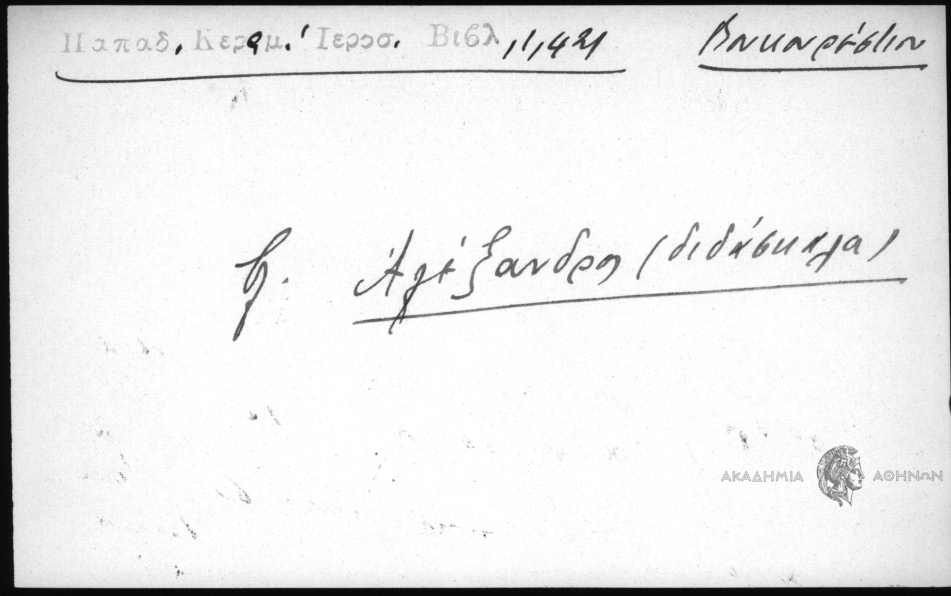 Παπαδ. Κεραμ. Ιεροσ. Βιβλ, 1, 421 Βουκουρέστιον
βλ. Ἀλέξανδρος (διδάσκαλος)
ΑΚΑΔΗΜΙΑ ΑΘΗΝΩΝ